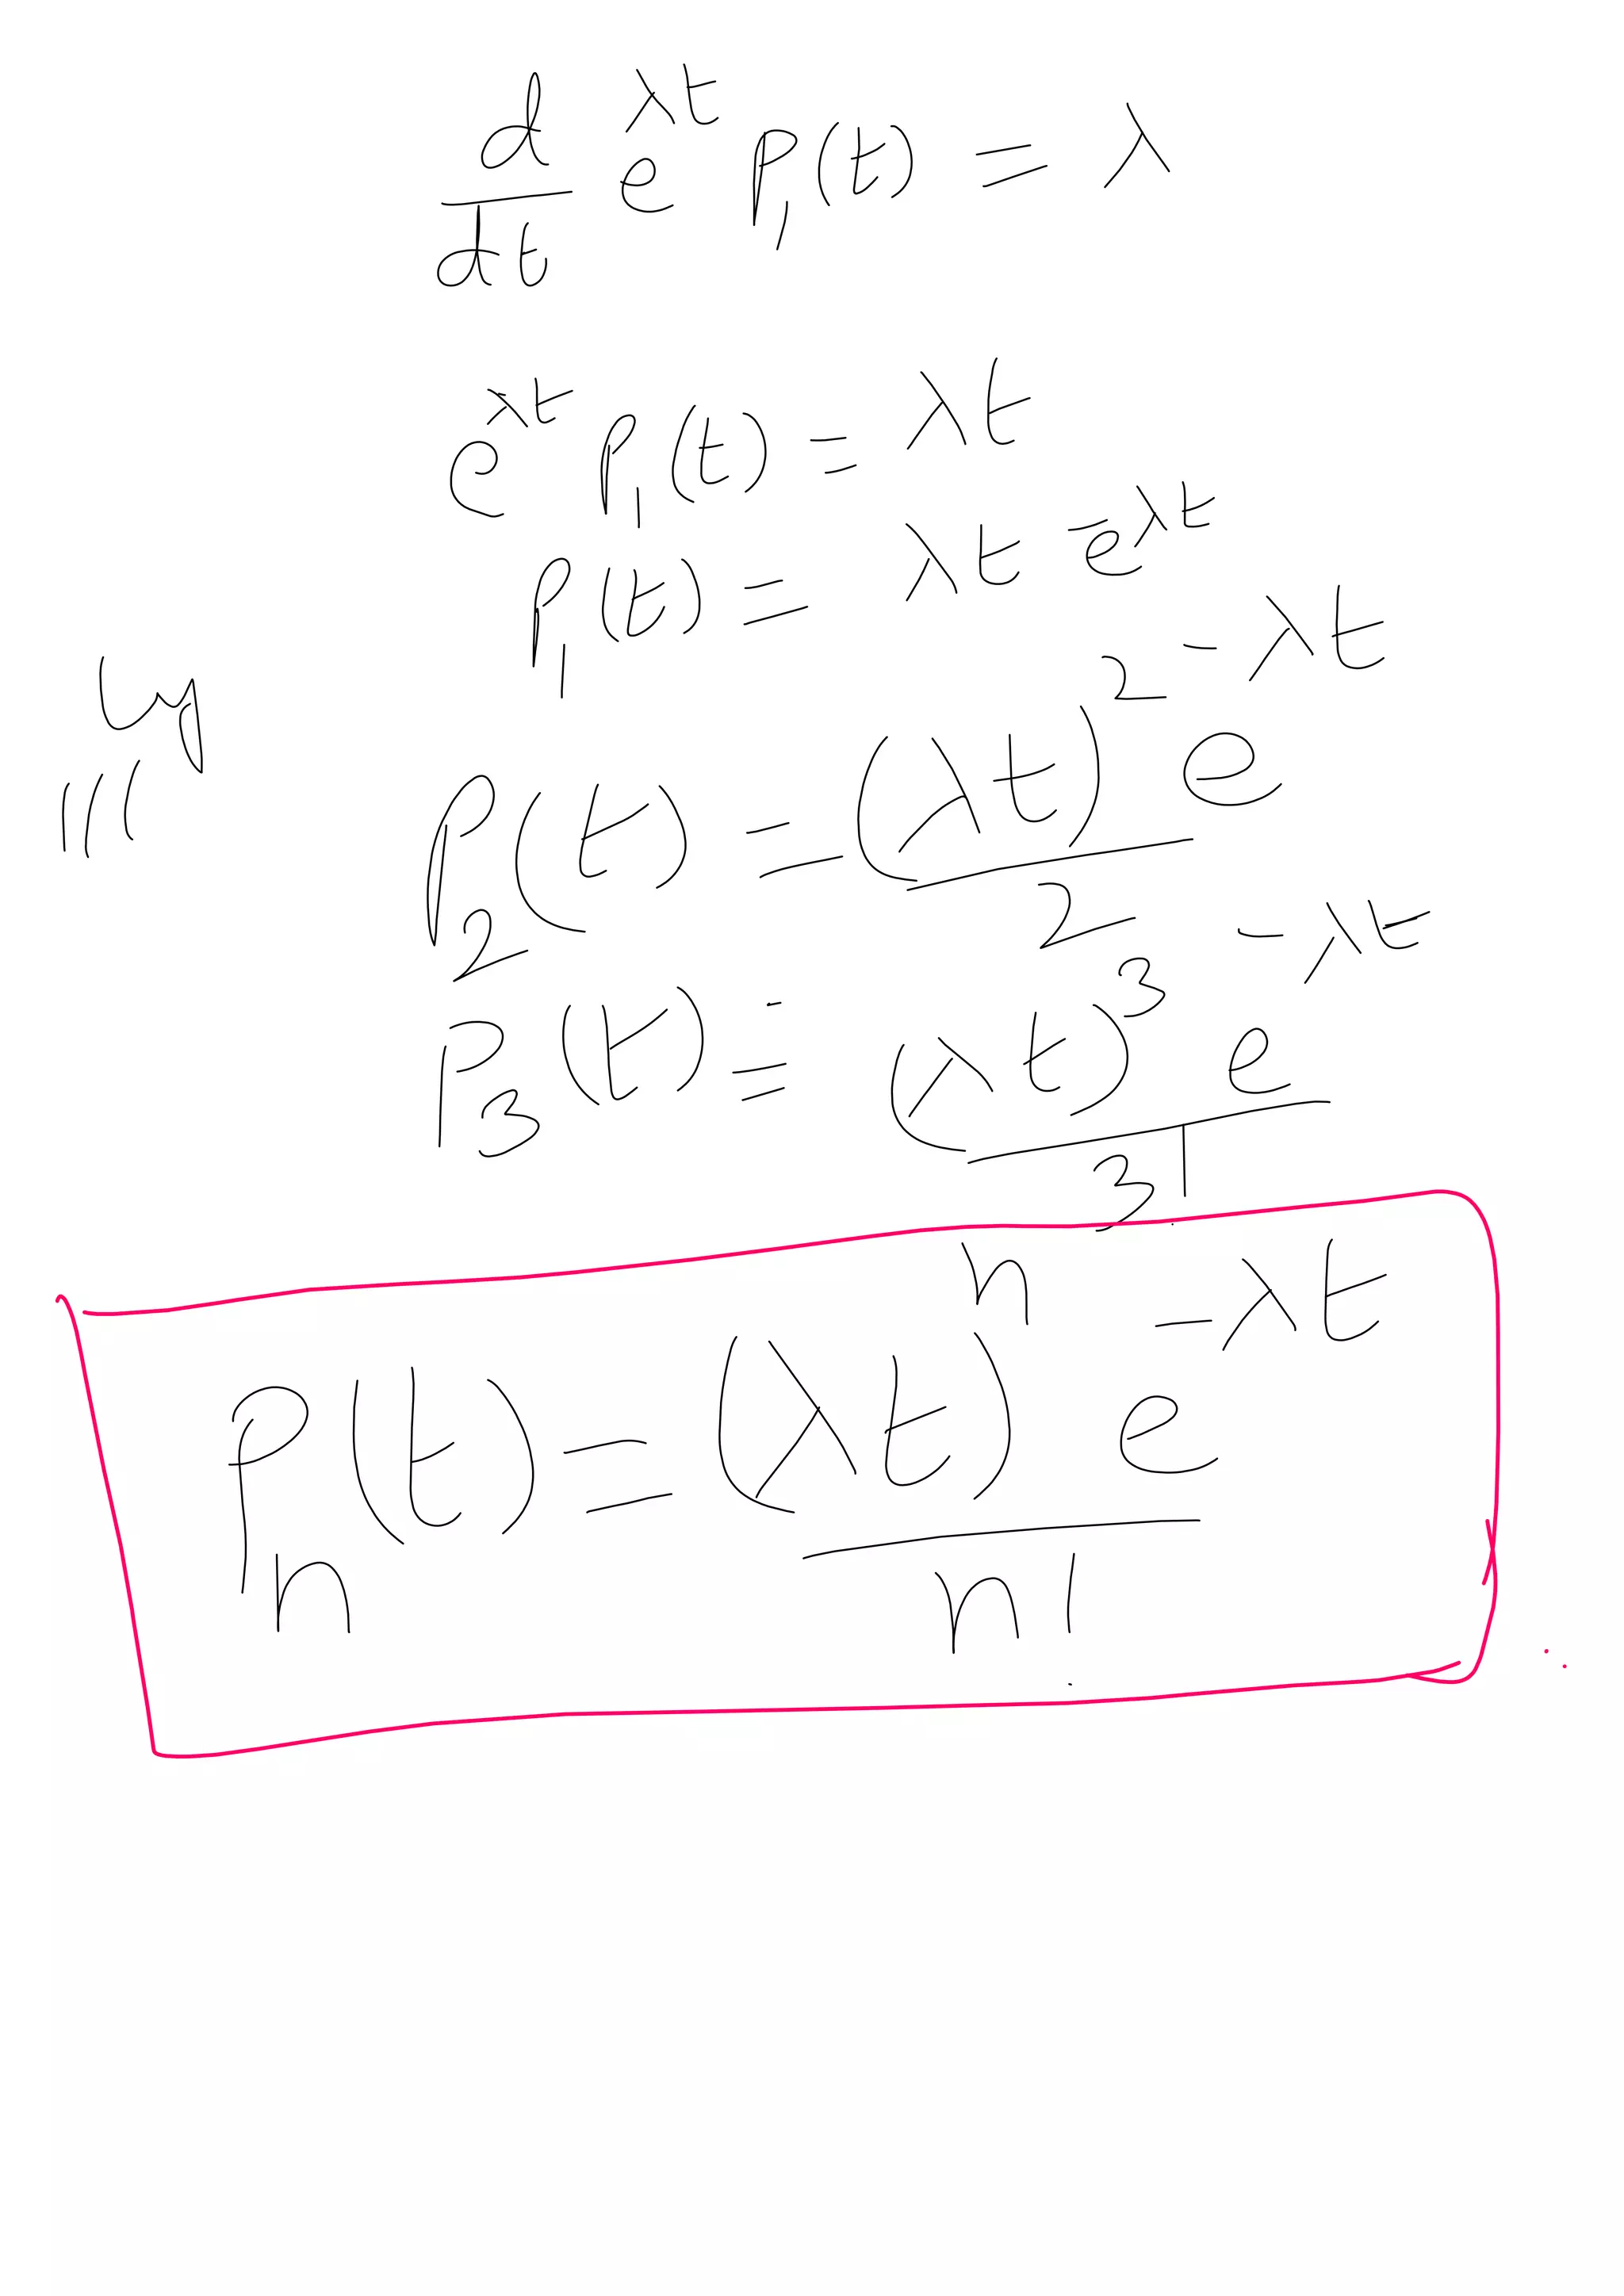 d/dt e^λt P₁(t) = λ
e^λt P₁(t) = λt
P₁(t) = λt e^-λt
lly
P₂(t) = (λt)² e^-λt / 2
P₃(t) = (λt)³ e^-λt / 3!
Pₙ(t) = (λt)ⁿ e^-λt / n!